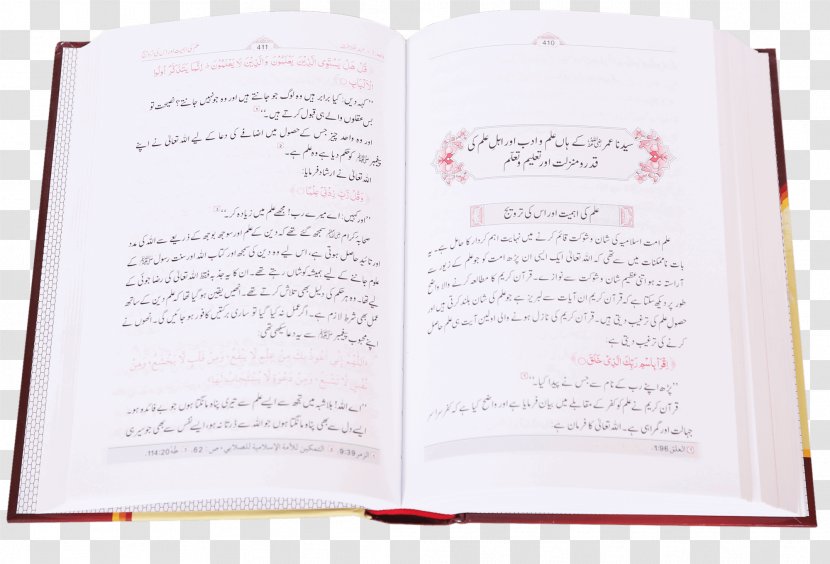 410
سیدنا عمر رضی اللہ عنہ کے ہاں علم و ادب اور اہل علم کی
قدر و منزلت اور تعلیم و تعلم
علم کی اہمیت اور اس کی ترویج
علم امت اسلامیہ کی شان و شوکت قائم کرنے میں نہایت اہم کردار کا حامل ہے۔ یہ
بات ناممکنات میں سے تھی کہ اللہ تعالیٰ ایک ایسی ان پڑھ امت کو جو علم کے زیور سے
آراستہ نہ ہو اتنی عظیم شان و شوکت سے نوازے۔ قرآن کریم کا مطالعہ کرنے والا واضح
طور پر دیکھ سکتا ہے کہ قرآن کریم ان آیات سے لبریز ہے جو علم کی شان بلند کرتی ہیں اور
حصول علم کی ترغیب دیتی ہیں۔ قرآن کریم کی نازل ہونے والی اولین آیت ہی علم حاصل
کرنے کی ترغیب دیتی ہے:
﴿اِقْرَاْ بِاسْمِ رَبِّكَ الَّذِیْ خَلَقَ﴾
’’پڑھ اپنے رب کے نام سے جس نے پیدا کیا۔‘‘
قرآن کریم نے علم کو کفر کے مقابلے میں بیان فرمایا ہے اور واضح کیا ہے کہ کفر سراسر
جہالت اور گمراہی ہے۔ اللہ تعالیٰ کا فرمان ہے:
العلق 1:96
411
علم کی اہمیت اور اس کی ترویج
﴿قُلْ هَلْ یَسْتَوِی الَّذِیْنَ یَعْلَمُوْنَ وَالَّذِیْنَ لَا یَعْلَمُوْنَ ؕ اِنَّمَا یَتَذَكَّرُ اُولُوا
الْاَلْبَابِ﴾
’’کہہ دیں: کیا برابر ہیں وہ لوگ جو جانتے ہیں اور وہ جو نہیں جانتے؟ نصیحت تو
بس عقلوں والے ہی قبول کرتے ہیں۔‘‘
اور وہ واحد چیز جس کے حصول میں اضافے کی دعا کے لیے اللہ تعالیٰ نے اپنے
پیغمبر ﷺ کو حکم دیا ہے وہ علم ہے۔
اللہ تعالیٰ نے ارشاد فرمایا:
﴿وَقُلْ رَّبِّ زِدْنِیْ عِلْمًا﴾
’’اور کہیں: اے میرے رب! مجھے علم میں زیادہ کر۔‘‘
صحابہ کرام سمجھ گئے تھے کہ دین کی معرفت اور سوجھ بوجھ کے ذریعے سے اللہ کی مدد
اور تائید حاصل ہوتی ہے، اس لیے وہ دین کی سمجھ اور کتاب اللہ اور سنت رسول ﷺ کے
علوم جاننے کے لیے ہمیشہ کوشاں رہتے تھے۔ ان کا یہ جذبہ فقط اللہ تعالیٰ کی رضا جوئی کے
لیے تھا۔ وہ ہر حکم کی دلیل بھی تلاش کرتے تھے۔ انھیں یقین ہو گیا تھا کہ علم دین کے ساتھ
عمل بھی شرط لازم ہے۔ اگر عمل نہ کیا گیا تو ساری برکتیں کافور ہو جائیں گی۔ انھوں نے
اپنے محبوب پیغمبر ﷺ سے یہ دعا سیکھی تھی:
اَللّٰهُمَّ اِنِّی اَعُوْذُ بِكَ مِنْ عِلْمٍ لَا یَنْفَعُ، وَمِنْ قَلْبٍ لَا یَخْشَعُ، وَمِنْ
نَفْسٍ لَا تَشْبَعُ، وَمِنْ دَعْوَةٍ لَا یُسْتَجَابُ لَهَا
’’اے اللہ! بلاشبہ میں تجھ سے ایسے علم سے تیری پناہ مانگتا ہوں جو بے فائدہ ہو۔
ایسے دل سے بھی پناہ مانگتا ہوں جو اللہ سے ڈرتا نہ ہو، ایسے نفس سے بھی جو سیر ہی
الزمر 9:39. التمكين للأمة الإسلامية للصلابي، ص: 62. طٰهٰ 114:20.